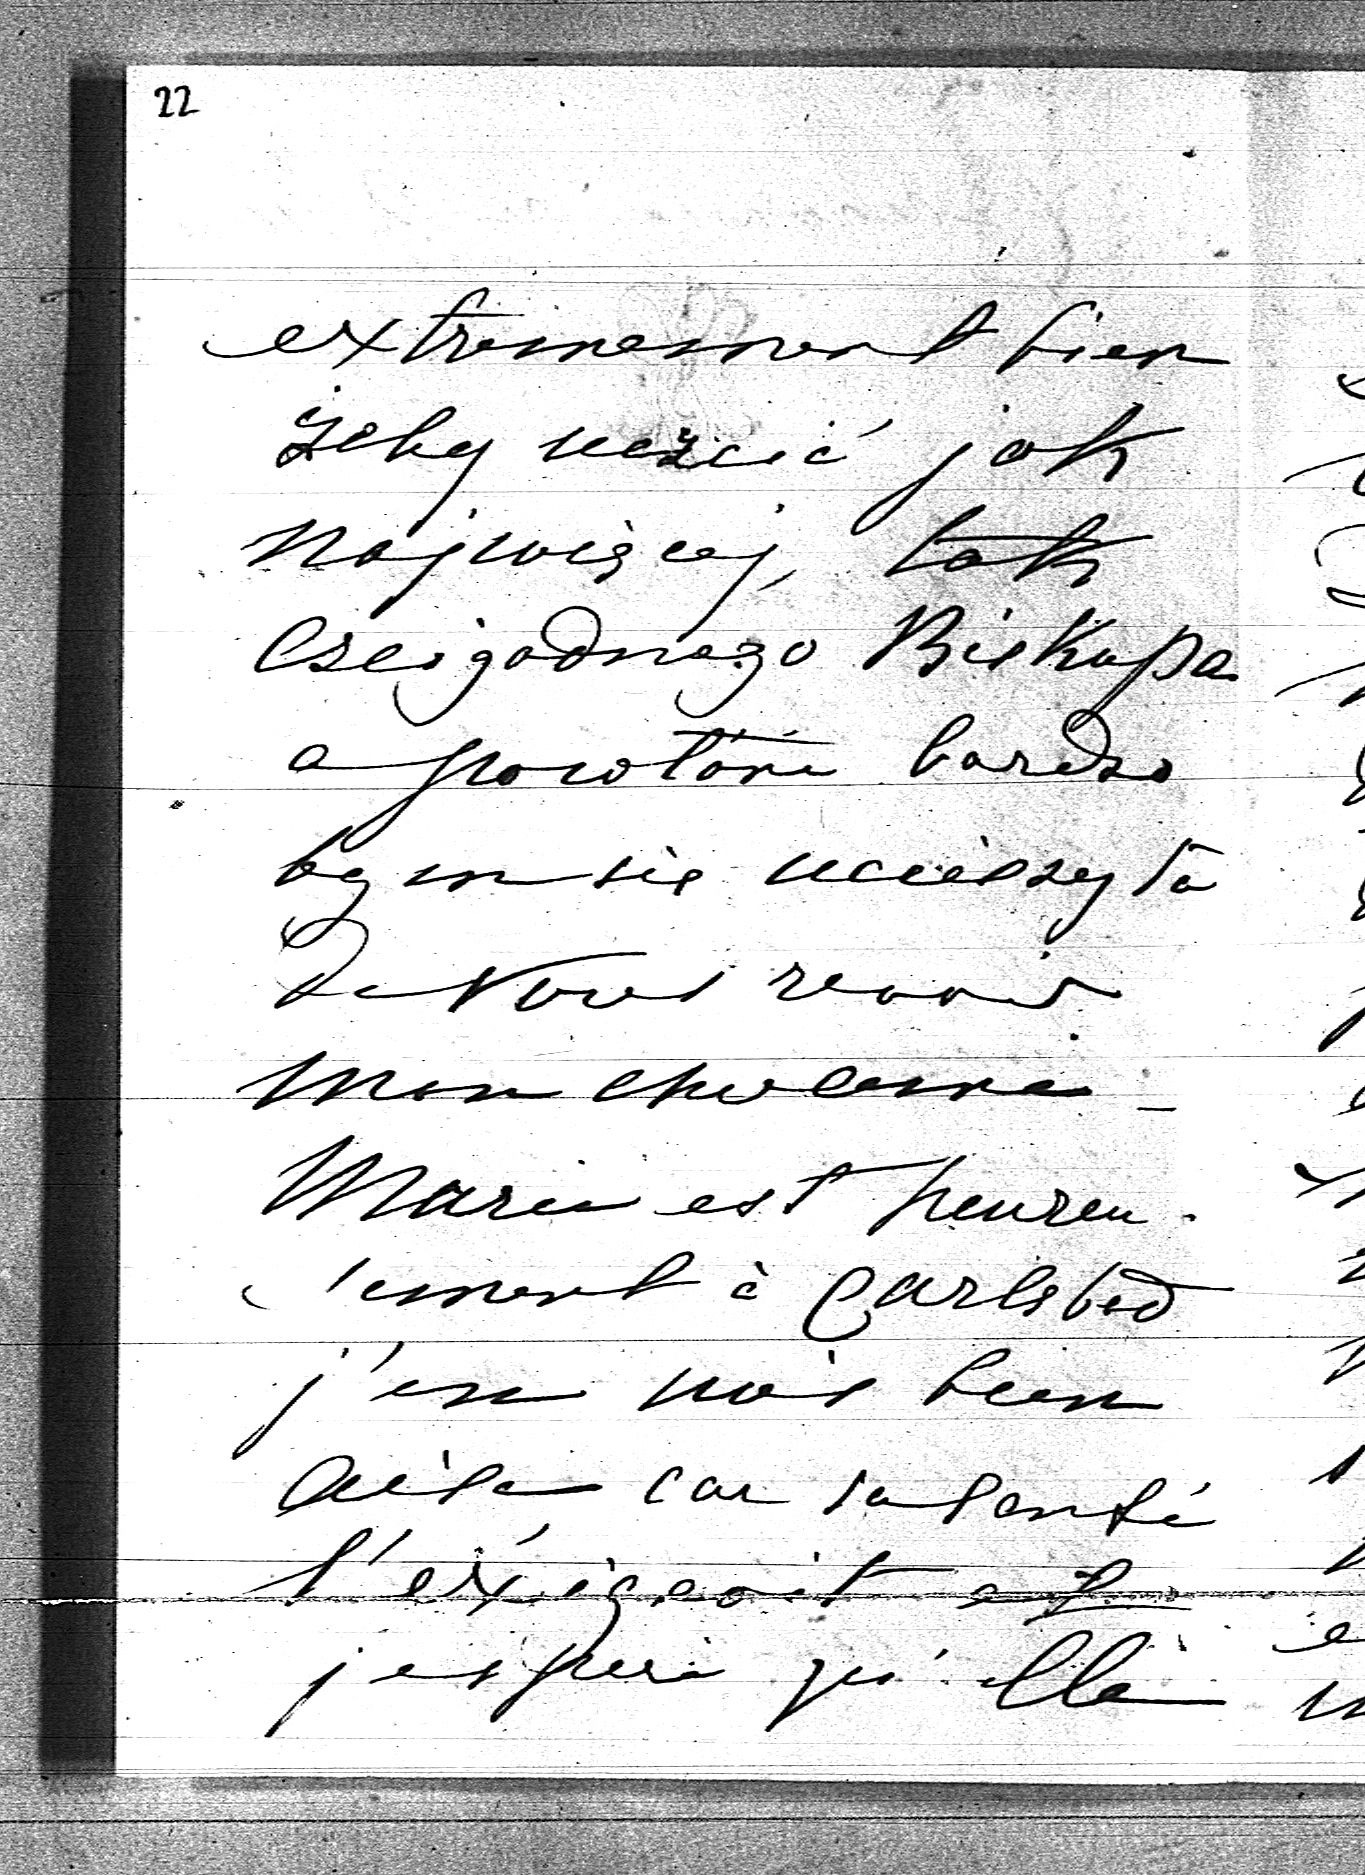 22
extremement bien
żeby uczcić jak
najwięcej, tak
Czcigodnego Biskupa
a powtóre bardzo
bym się ucieszyła
de Vous revoir
mon
Marie est heureu-
sement à Carlsbad
j'en suis bien
aise car sa santé
l'éxigeoit et
j'espère qu'elle